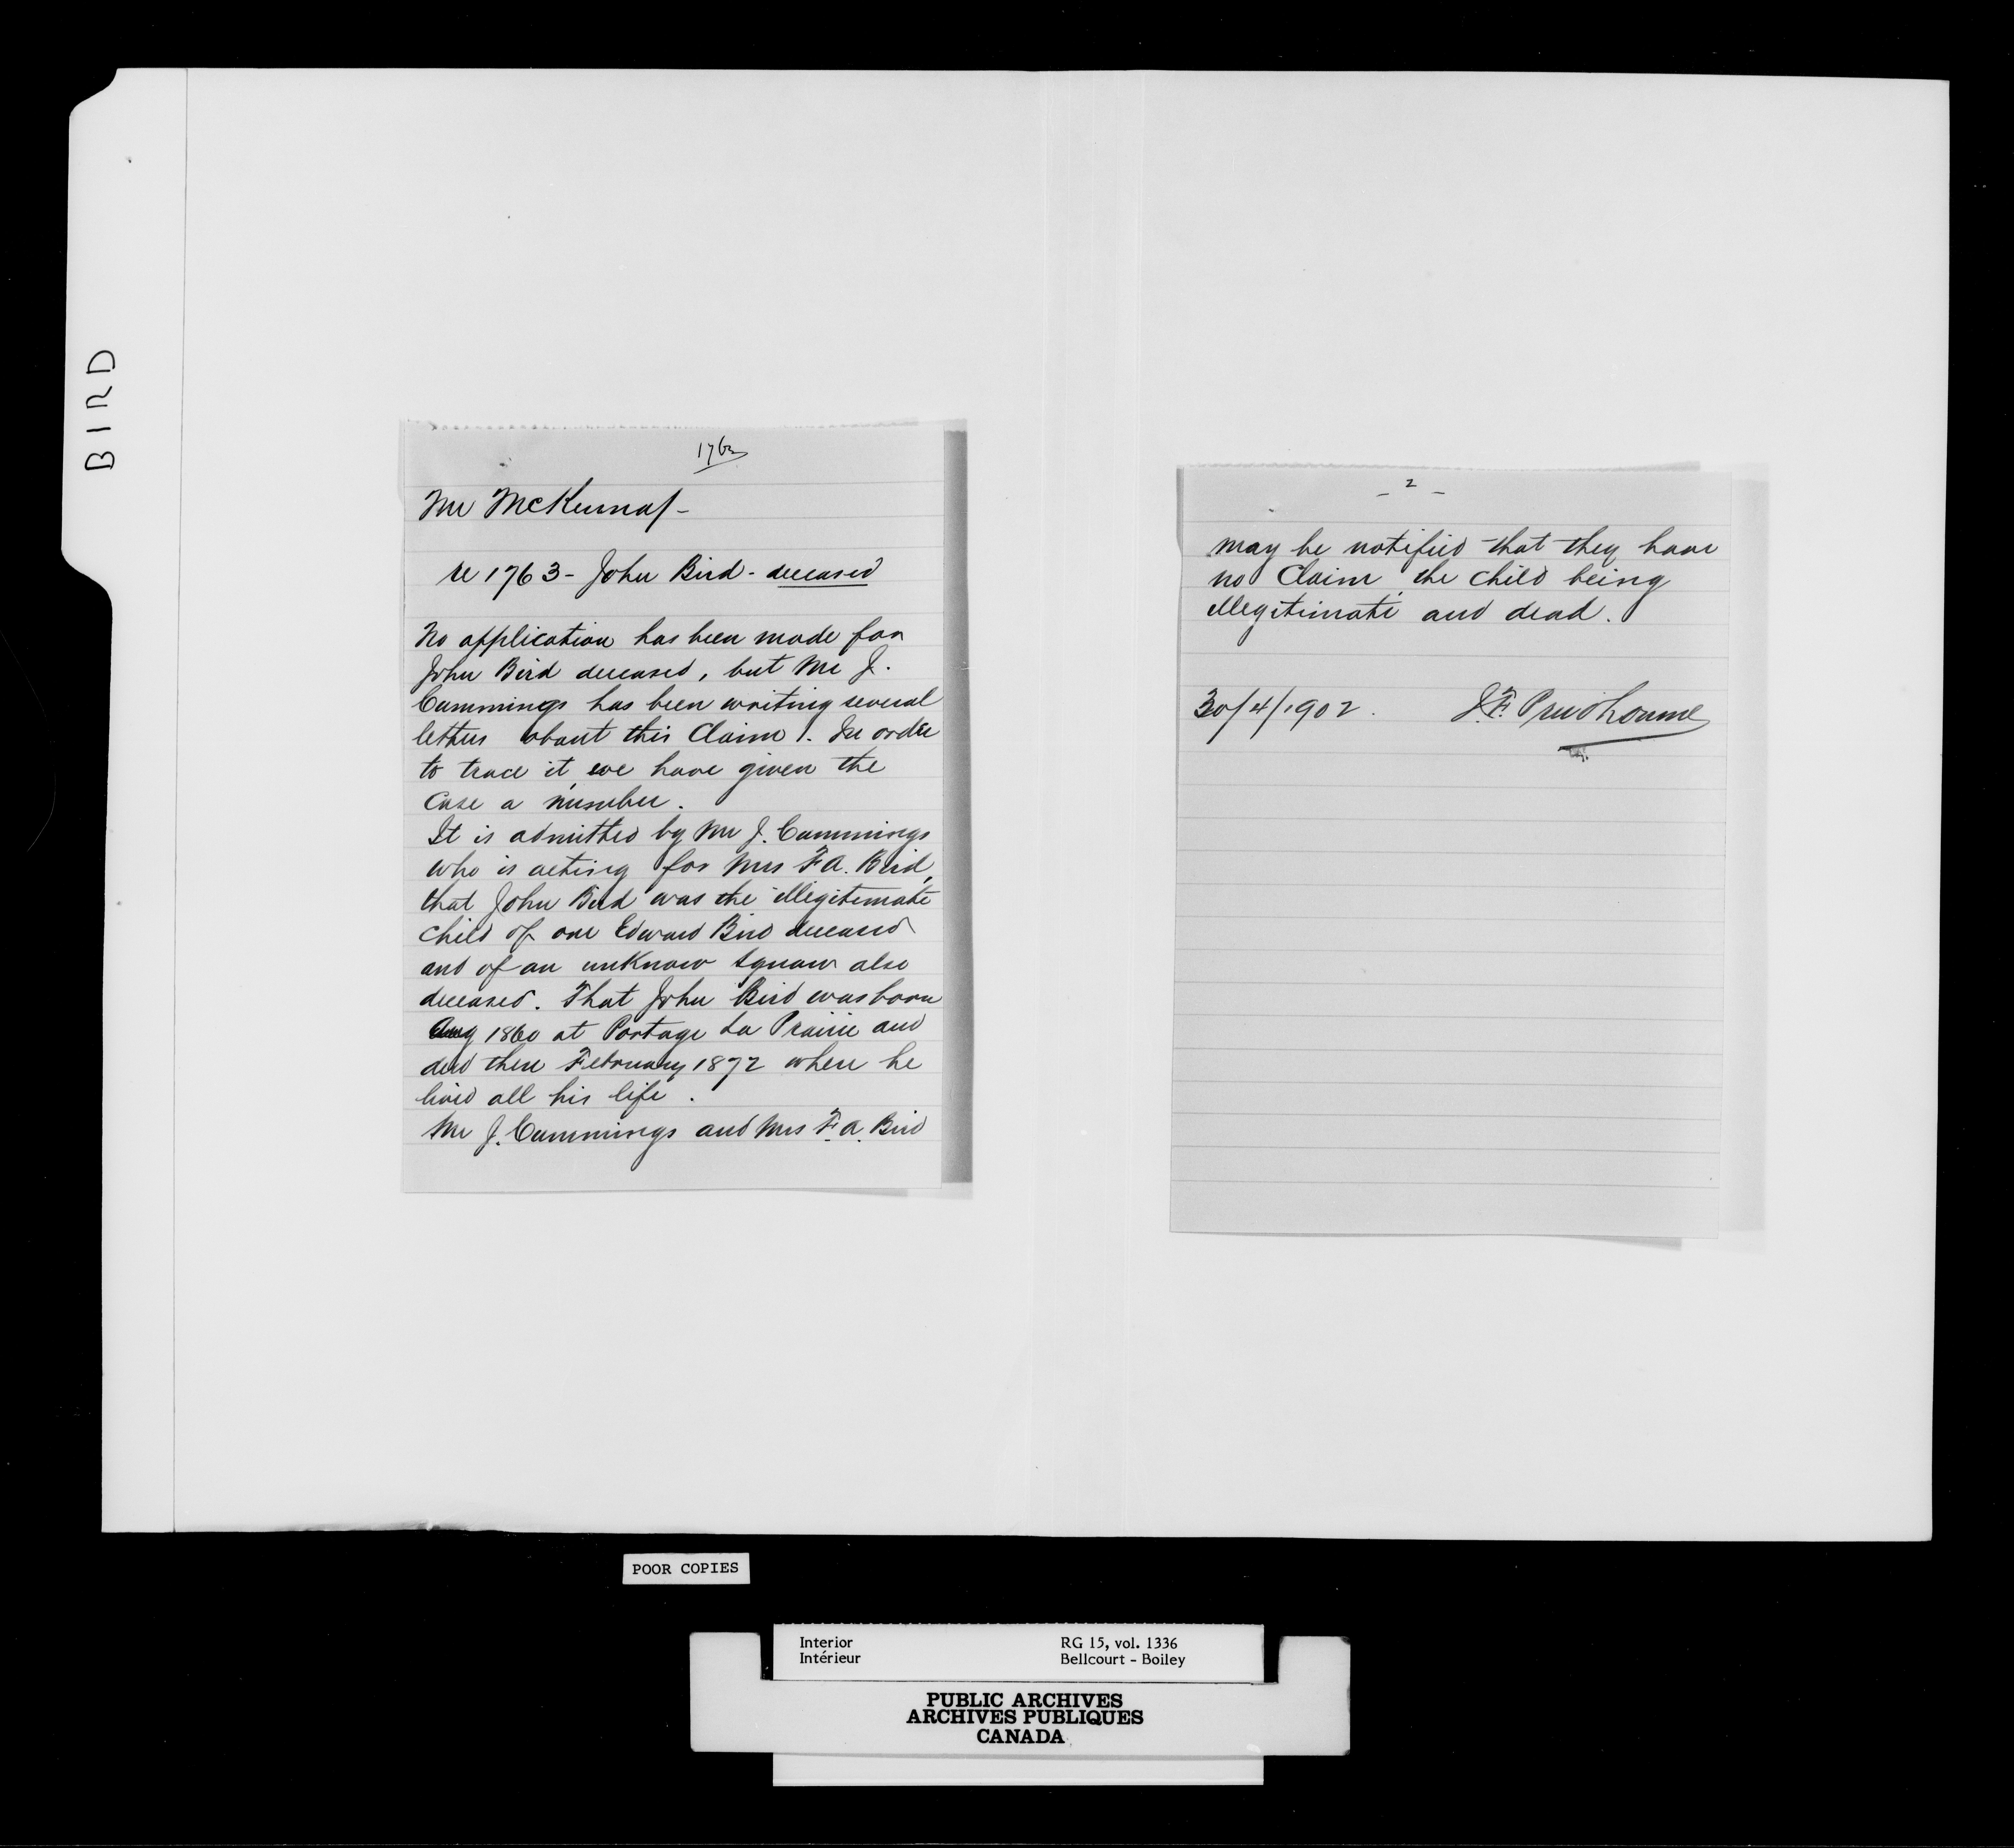 BIRD
1763
Mr McKenna
re 1763 - John Bird - deceased
No application has been made for
John Bird deceased, but Mr J.
Cummings has been writing several
letters about this Claim. In order
to trace it, we have given the
case a number.
It is admitted by Mr J. Cummings
who is acting for Mrs F A. Bird,
that John Bird was the illegitimate
child of one Edward Bird deceased
and of an unknow squaw also
deceased. That John Bird was born
Aug 1860 at Portage La Prairie and
died there February 1872 where he
lived all his life.
Mr J. Cummings and Mrs F. A. Bird
- 2 -
may be notified that they have
no Claim, the child being
illegitimate and dead.
30/4/1902. J. F. Prudhomme
POOR COPIES
Interior RG 15, vol. 1336
Intérieur Bellcourt - Boiley
PUBLIC ARCHIVES
ARCHIVES PUBLIQUES
CANADA